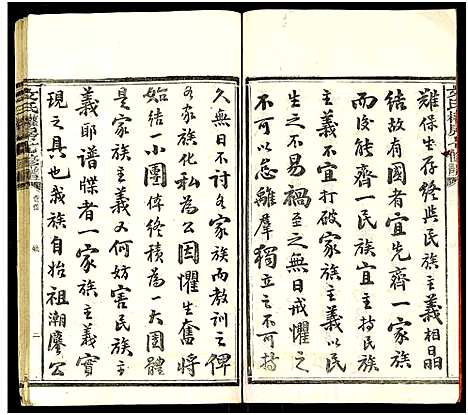 難保生存終與民族主義相日朙
結故有國宜先齊一家族
而後能齊一民族宜主持民族
主義不宜打破家族主義以民
生之不易禍至之無日戒懼之
不可以怠離羣獨立之不可恃
久無日不討各家族而教訓之俾
各家族化私為公因懼生奮將
始結一小團俾終積為一大團體
是家族主義又何妨害民族主
義耶譜牒者一家族主義實
現之具也我族自始祖潮廖公
文氏 七修譜
卷首
二